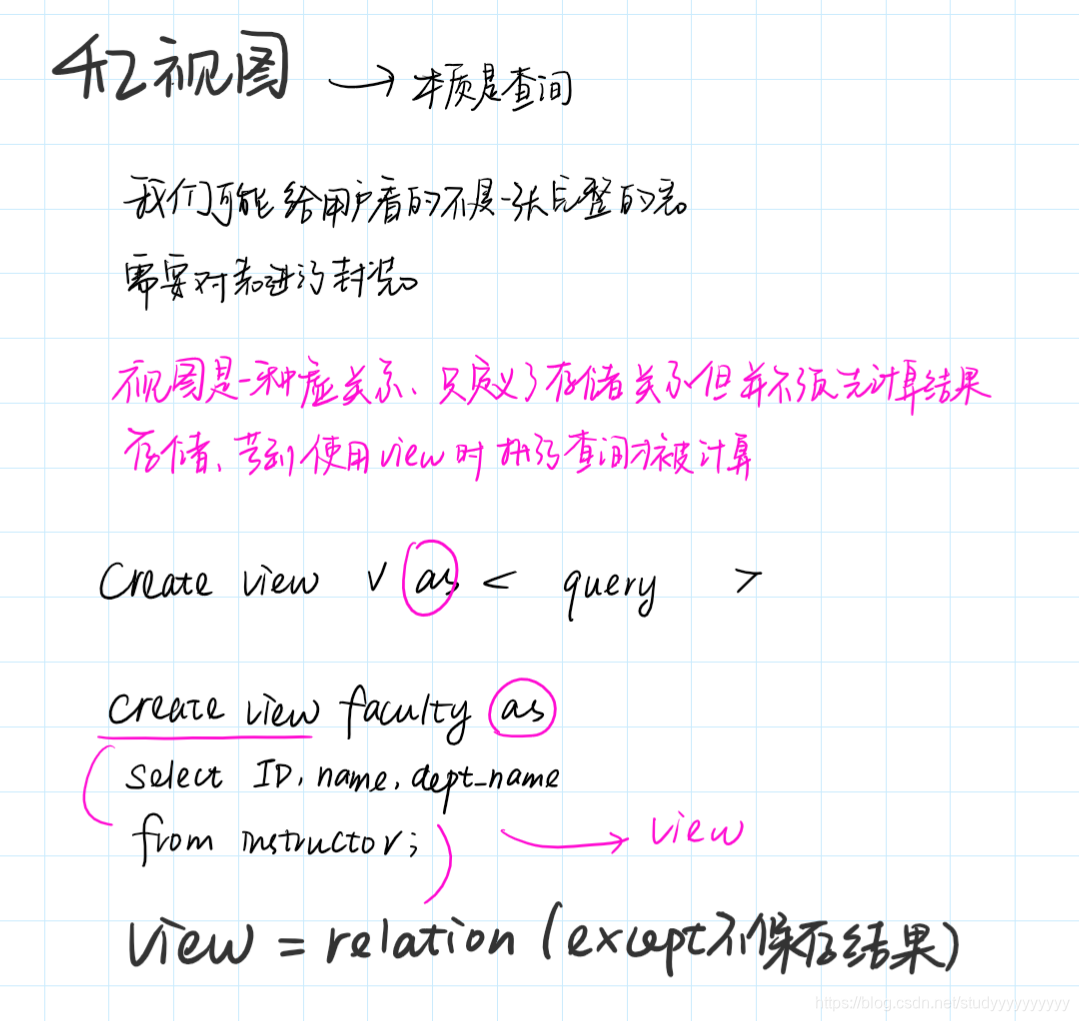 4.2 视图 → 本质是查询
我们可能给用户看的不是一张完整的表。
需要对表进行封装。
视图是一种虚关系、只定义了存储关系但并不预先计算结果
存储、等到使用view时执行查询才被计算
Create view v as < query >
create view faculty as
select ID, name, dept_name
from instructor; → view
view = relation (except不保存结果)
https://blog.csdn.net/studyyyyyyyyyy